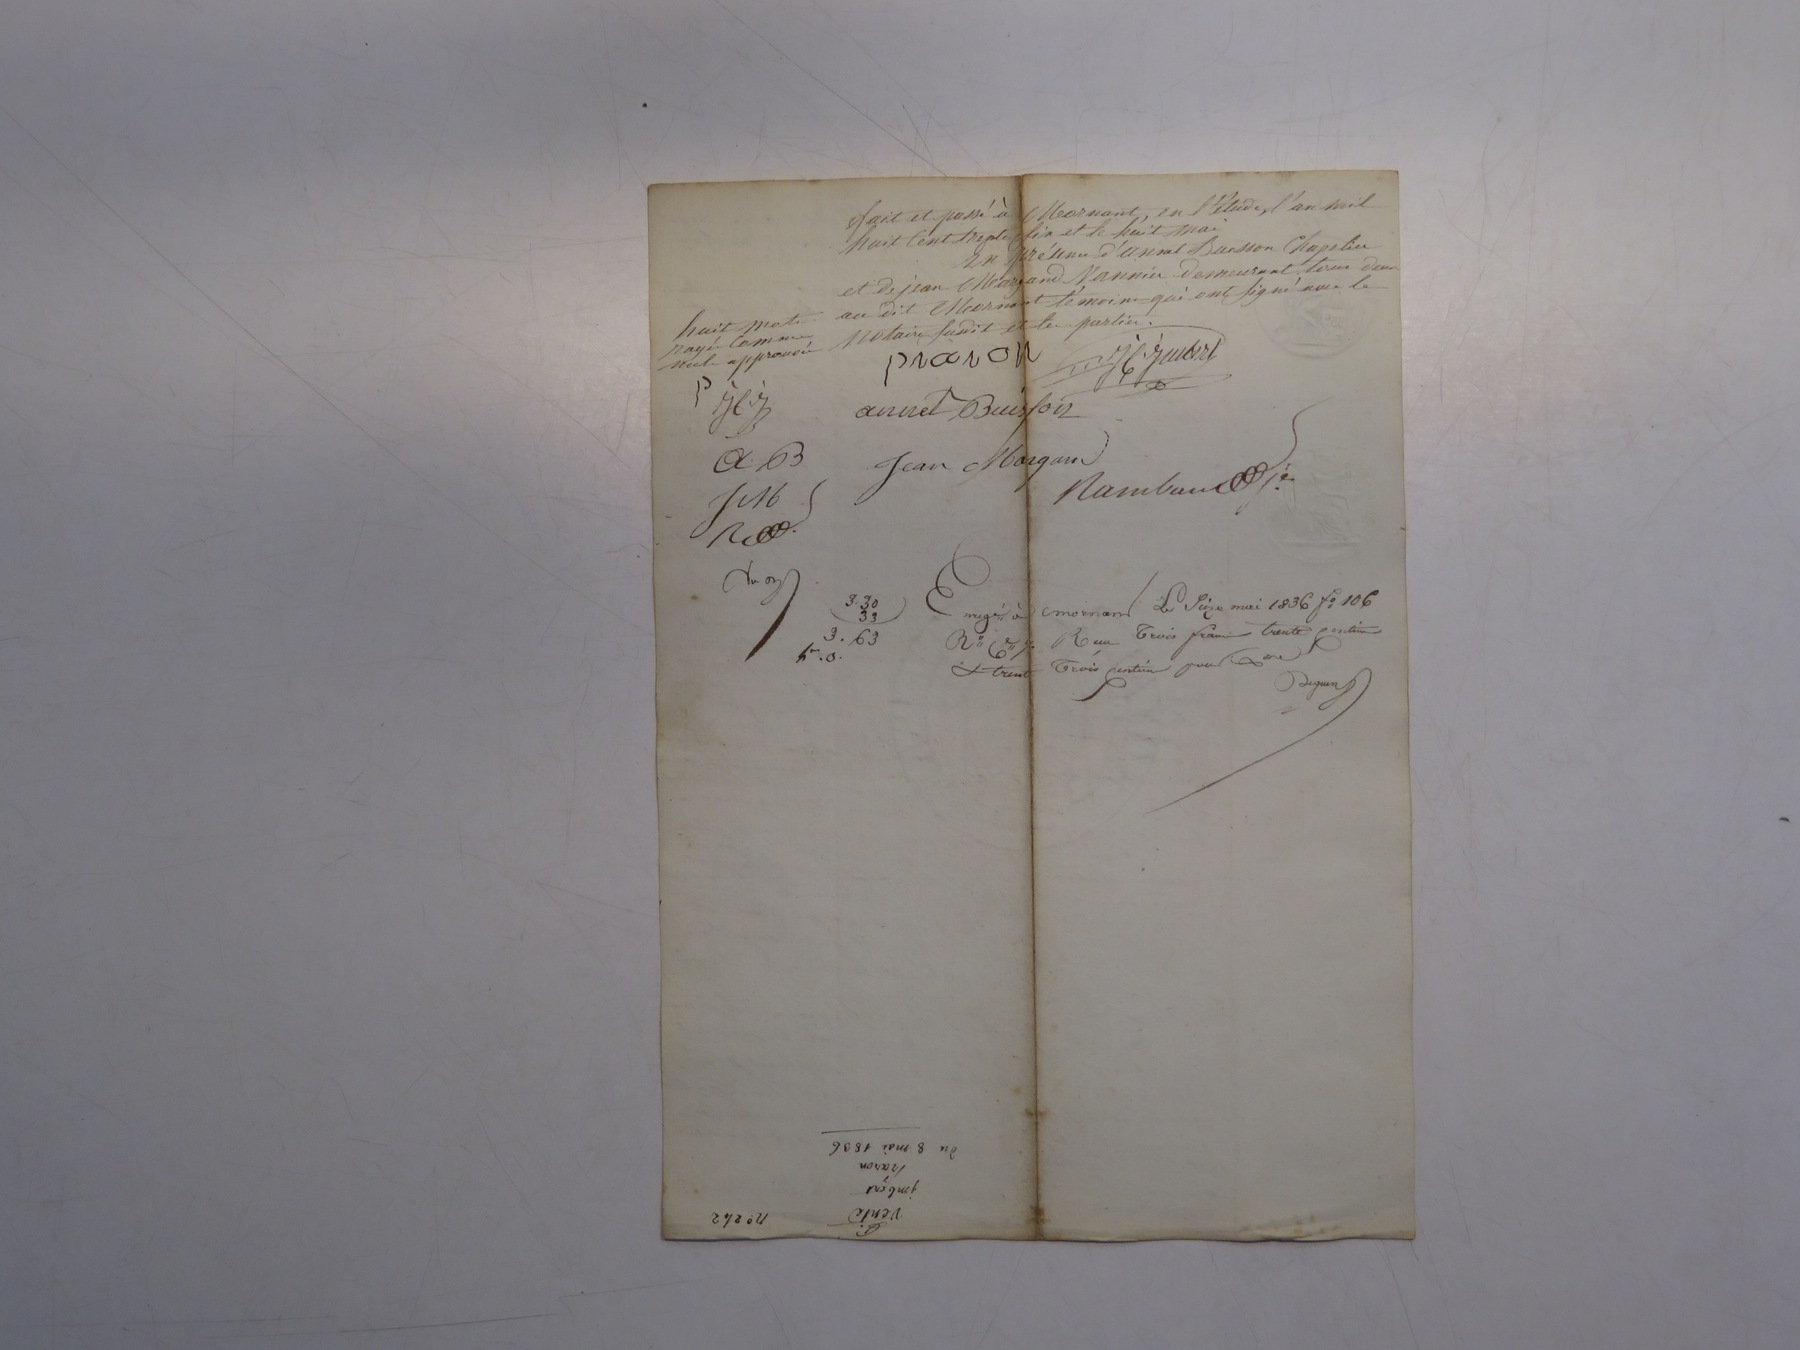 fait et passé à Mornant, en l'étude, l'an mil
huit cent trente six et le huit mai
En présence d'annet Buisson Chapelier
et de jean Margand Vannier demeurant tous deux
au dit Mornant témoins qui ont signé avec le
Notaire susdit et les parties.
huit mots
rayés comme
nuls approuvés
praron
annet Buisson
A. B
Jean Margand
J M
3.30
33
3.63
Enregé à mornant Le Seize mai 1836 fo 106
Ro Reçu Trois francs trente centimes
& trente Trois centimes pour
du 8 mai 1836
praron
imbert
Vente
no 242